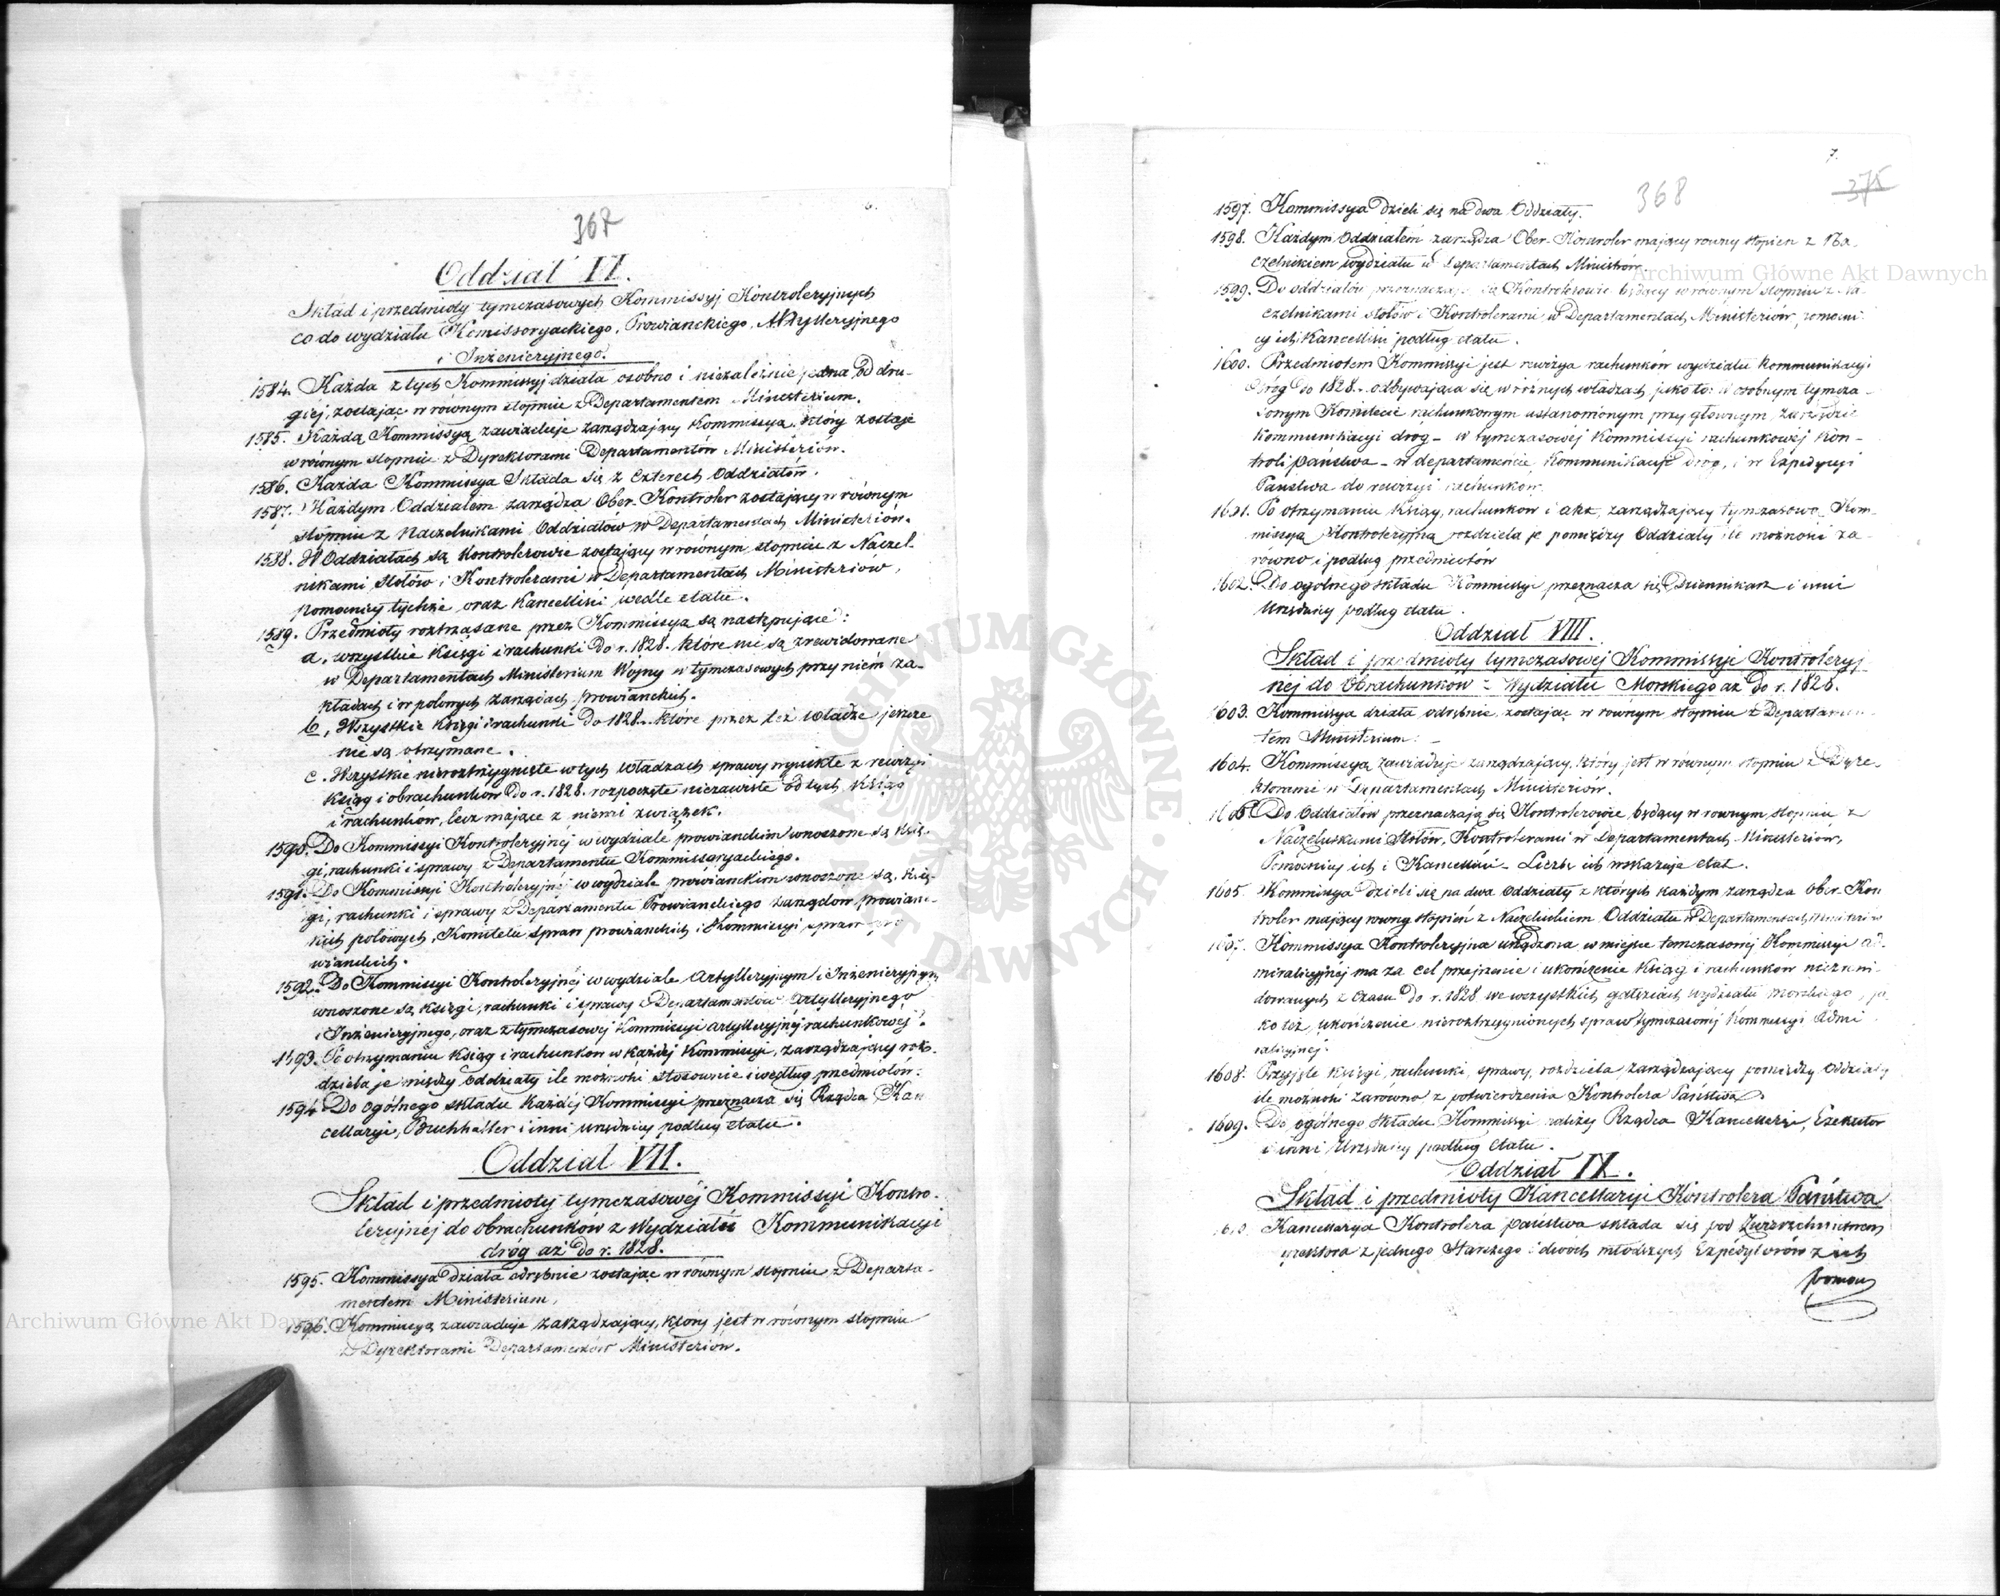 6.
367
Oddział VI.
Skład i przedmioty tymczasowych Kommissyj Kontroleryjnych
co do wydziału Komissoryackiego, Prowianckiego, Artylleryjnego
i Inżenieryjnego.
1584. Każda z tych Kommissyj działa osobno i niezależnie jedna od dru-
giej, zostając w równym stopniu z Departamentem Ministerium.
1585. Każdą Kommissyą zawiaduje zarządzający Kommissyą, który zostaje
w równym stopniu z Dyrektorami Departamentów Ministeriów.
1586. Każda Kommissya Składa się z czterech Oddziałów.
1587. Każdym Oddziałem zarządza Ober-Kontroler zostający w równym
stopniu z Naczelnikami Oddziałów w Departamentach Ministeriów.
1588. W Oddziałach są Kontrolerowie zostający w równym stopniu z Naczel-
nikami Stołów i Kontrolerami w Departamentach Ministeriów,
pomocnicy tychże oraz Kancelliści wedle etatu.
1589. Przedmioty roztrząsane przez Kommissya są następujące:
a. wszystkie Księgi i rachunki do r. 1828. które nie są zrewidowane
w Departamentach Ministerium Wojny w tymczasowych przy niém za-
kładach i w polowych Zarządach prowianckich.
b, Wszystkie Księgi i rachunki do 1828. które przez też Władze jeszcze
nie są otrzymane.
c. Wszystkie nierozstrzygnięte w tych Władzach sprawy wynikłe z rewizyi
Ksiąg i obrachunków do r. 1828. rozpoczęte niezawiśle od tych Ksiąg
i rachunków, lecz mające z niemi związek.
1590. Do Kommissyi Kontroleryjnéj w wydziale prowianckim wnoszone są Księ-
gi, rachunki i sprawy z Departamentu Kommissaryackiego.
1591. Do Kommissyi Kontroleryjnéj w wydziale prowianckim wnoszone są, Księ-
gi, rachunki i sprawy z Departamentu Prowianckiego zarządów prowianc-
kich polówych, Komitetu spraw prowianckich i Kommissyi spraw pro
wianckich.
1592. Do Kommissyi Kontroleryjnéj w wydziale Artylleryjnym i Inżenieryjnym
wnoszone są księgi, rachunki i sprawy z Departamentów Artylleryjnego
i Inżenieryjnego, oraz z tymczasowej Kommissyi artylleryjnéj rachunkowéj.
1593. Po otrzymaniu Ksiąg i rachunków w każdéj Kommissyi, zarządzający roz-
dziela je między oddziały ile możności stosownie i według przedmiotów.
1594. Do ogólnego składu każdéj Kommissyi przeznacza się Rządca Kan
cellaryi, Buchhalter i inni urzędnicy podług etatu.
Oddział VII.
Skład i przedmioty tymczasowéj Kommissyi Kontro-
leryjnéj do obrachunków z Wydziału Kommunikacyi
dróg aż do r. 1828.
1595. Kommissya działa odrębnie zostając w równym stopniu z Departa-
mentem Ministerium,
1596. Kommissyą zawiaduje zarządzający, który jest w równym stopniu
z Dyrektorami Departamentów Ministeriów.
7.
368
375
1597. Kommissya dzieli się na dwa Oddziały.
1598. Każdym Oddziałem zarządza Ober-Kontroler mający równy stopień z Na-
czelnikiem wydziału w Departamentach Ministeriów
1599. Do oddziałów przeznaczają się Kontrolerowie będący w równym stopniu z Na-
czelnikami stołów i Kontrolerami w Departamentach Ministeriów, pomocni
cy ich, Kancelliści podług etatu.
1600. Przedmiotem Kommissyi jest rewizya rachunków wydziału kommunikacyi
dróg do 1828. odbywająca się w różnych władzach, jako to: w osobnym tymcza-
sowym Komitecie rachunkowym ustanowionym przy głównym zarządzie
kommunikacyi dróg - w tymczasowéj Kommissyi rachunkowéj Kon-
troli państwa - w departamencie Kommunikacyi dróg, i w Expedycyi
Państwa do rewizyi rachunków.
1601. Po otrzymaniu ksiąg, rachunków i akt, zarządzający tymczasową Kom-
missyą Kontroleryjną rozdziela je pomiędzy Oddziały ile możności za-
równo i podług przedmiotów
1602. Do ogólnego składu Kommissyi przeznacza się Dziennikarz i inni
Urzędnicy podług etatu.
Oddział VIII.
Skład i przedmioty tymczasowéj Kommissyi Kontroleryj-
néj do Obrachunków z Wydziału Morskiego aż do r. 1828.
1603. Kommissya działa odrębnie, zostając w równym stopniu z Departamen-
tem Ministerium:
1604. Kommissyą zawiaduje zarządzający, który jest w równym stopniu z Dyre-
ktorami w Departamentach Ministeriów.
1606 Do Oddziałów przeznaczają się Kontrolerowie będący w równym stopniu z
Naczelnikami Stołów, Kontrolerami w Departamentach Ministeriów,
Pomocnicy ich i Kancelliści - Liczbę ich wskazuje etat.
1605. Kommissya dzieli się na dwa Oddziały z których każdym zarządza Ober-Kon
troler mający równy stopień z Naczelnikiem Oddziału w Departamentach Ministeriów
1607. Kommissya Kontroleryjna urządzona w miejsce tymczasowéj Kommissyi ad-
miralicyjnéj ma za cel przejrzenie i ukończenie Ksiąg i rachunków niezrewi-
dowanych z czasu do r. 1828 we wszystkich gałęziach wydziału morskiego, ja
ko też, ukończenie nierozstrzygnionych spraw tymczasowéj Kommissyi Admi
ralicyjnéj.
1608. Przyjęte księgi, rachunki, sprawy, rozdziela zarządzający pomiędzy Oddziały
ile możności zarówno z potwierdzenia Kontrolera Państwa.
1609. Do ogólnego składu Kommissyi należy Rządca Kancellaryi, Exekutor
i inni Urzędnicy podług etatu.
Oddział IX.
Skład i przedmioty Kancellaryi Kontrolera Państwa
1610. Kancellarya Kontrolera państwa składa się pod Zwierzchnictwem
Dyrektora z jednego Starszego i dwóch młódszych Expedytorów z ich
pomoc
Archiwum Główne Akt Dawnych
Archiwum Główne Akt Dawnych
ARCHIWUM GŁÓWNE AKT DAWNYCH